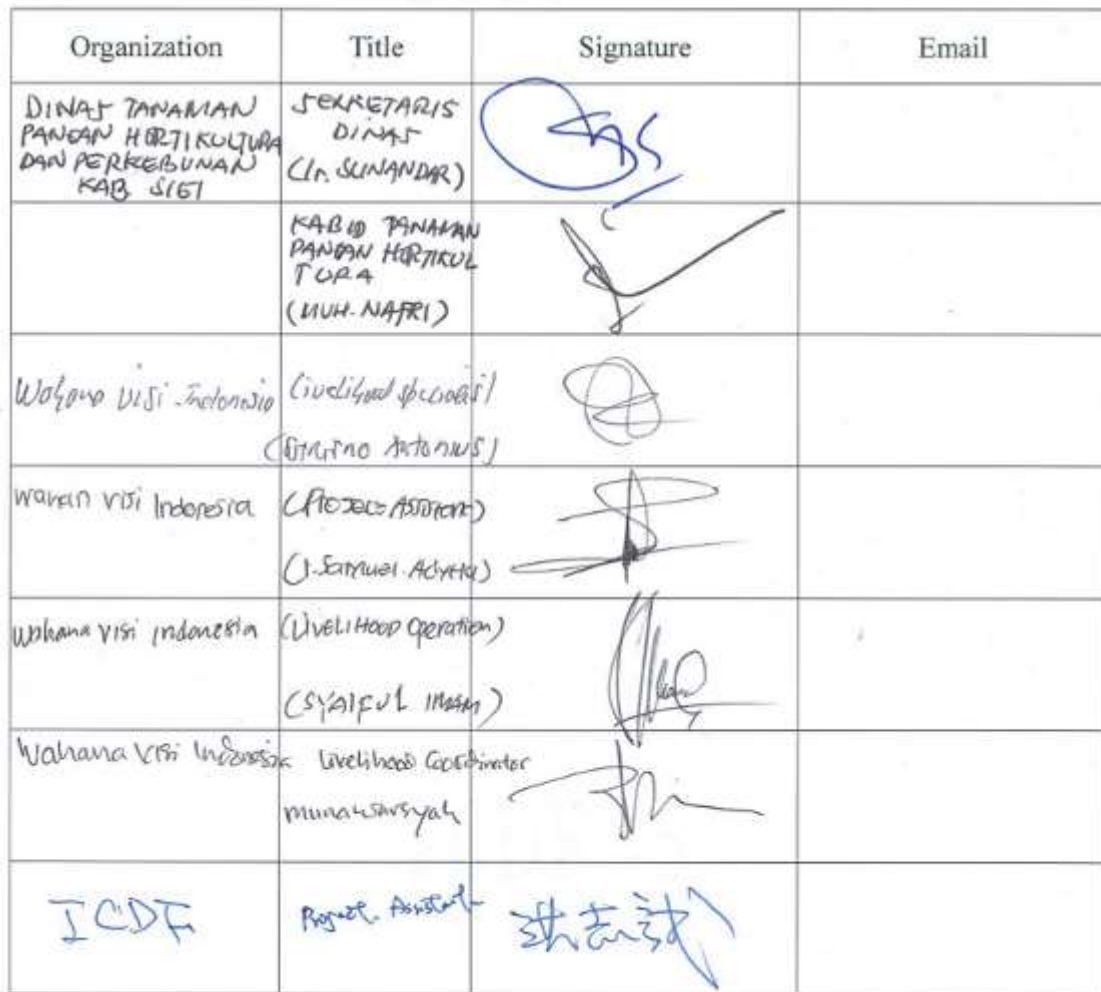 Organization Title Signature Email
DINAS TANAMAN
PANGAN HORTIKULTURA
DAN PERKEBUNAN
KAB SIGI
SEKRETARIS
DINAS
(Ir. SUNANDAR)
KABID TANAMAN
PANGAN HORTIKUL
TURA
(MUH. NAFRI)
Wahana Visi Indonesia
Livelihood specialist
Antonius)
wahan visi Indonesia
(Project Assistant)
(J. Samuel
wahana visi indonesia
(LIVELIHOOD Operation)
(SYAIFUL IMAM)
Wahana Visi Indonesia
Livelihood Coordinator
munawarsyah
ICDF
Project Assistant
洪志誠